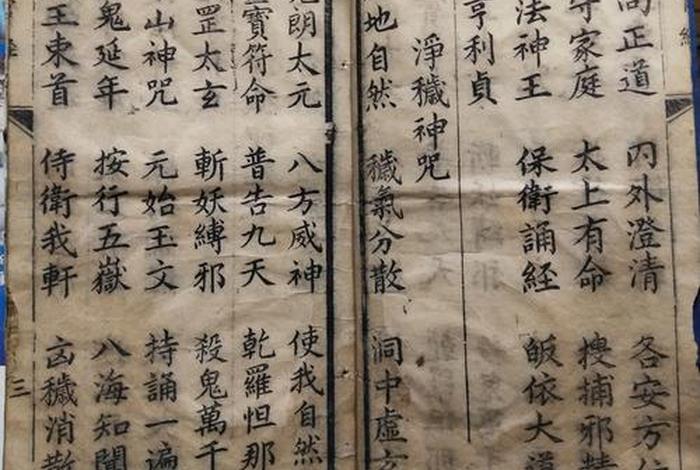 向正道 内外澄清 各安方位
守家庭 太上有命 搜捕邪精
法神王 保衛誦経 皈依大道
亨利貞
淨穢神咒
地自然 穢氣分散 洞中虛玄
朗太元 八方威神 使我自然
寶符命 普告九天 乾羅怛那
罡太玄 斬妖縛邪 殺鬼萬千
山神咒 元始玉文 持誦一遍
鬼延年 按行五嶽 八海知聞
王束首 侍衛我軒 凶穢消散
三